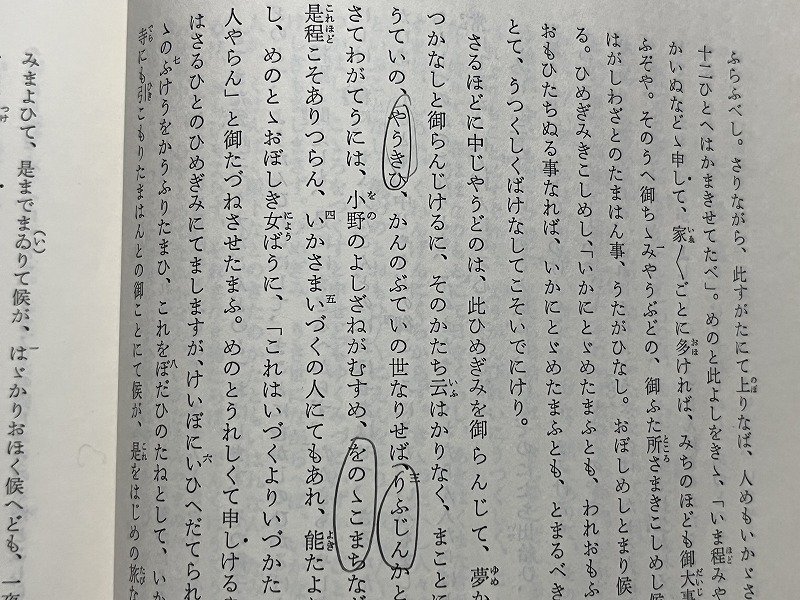 ふらふべし。さりながら、此すがたにて上りなば、人めもいかゞさ
十二ひとへはかまきせてたべ」。めのと此よしをきゝ、「いま程みや
かいぬなどゝ申して、家〳〵ごとに多ければ、みちのほども御大事
ふぞや。そのうへ御ちゝみやうぶどの、御ふた所さまきこしめし候
はがしわざとのたまはん事、うたがひなし。おぼしめしとまり候
る。ひめぎみきこしめし、「いかにとゞめたまふとも、われおもふ
おもひたちぬる事なれば、いかにとゞめたまふとも、とまるべき
とて、うつくしくばけなしてこそいでにけり。
さるほどに中じやうどのは、此ひめぎみを御らんじて、夢か
つかなしと御らんじけるに、そのかたち云はかりなく、まことに
うていの、やうきひ、かんのぶていの世なりせば、りふじんかと
さてわがてうには、小野のよしざねがむすめ、をのゝこまちなが
是程こそありつらん、いかさまいづくの人にてもあれ、能たよ
し、めのとゝおぼしき女ばうに、「これはいづくよりいづかた
人やらん」と御たづねさせたまふ。めのとうれしくて申しける
はさるひとのひめぎみにてましますが、けいぼにいひへだてられ
ゝのふけうをかうふりたまひ、これをぼだひのたねとして、いか
寺にも引こもりたまはんとの御ことにて候が、是をはじめの旅な
みまよひて、是までまゐりて候が、はゞかりおほく候へども、一夜